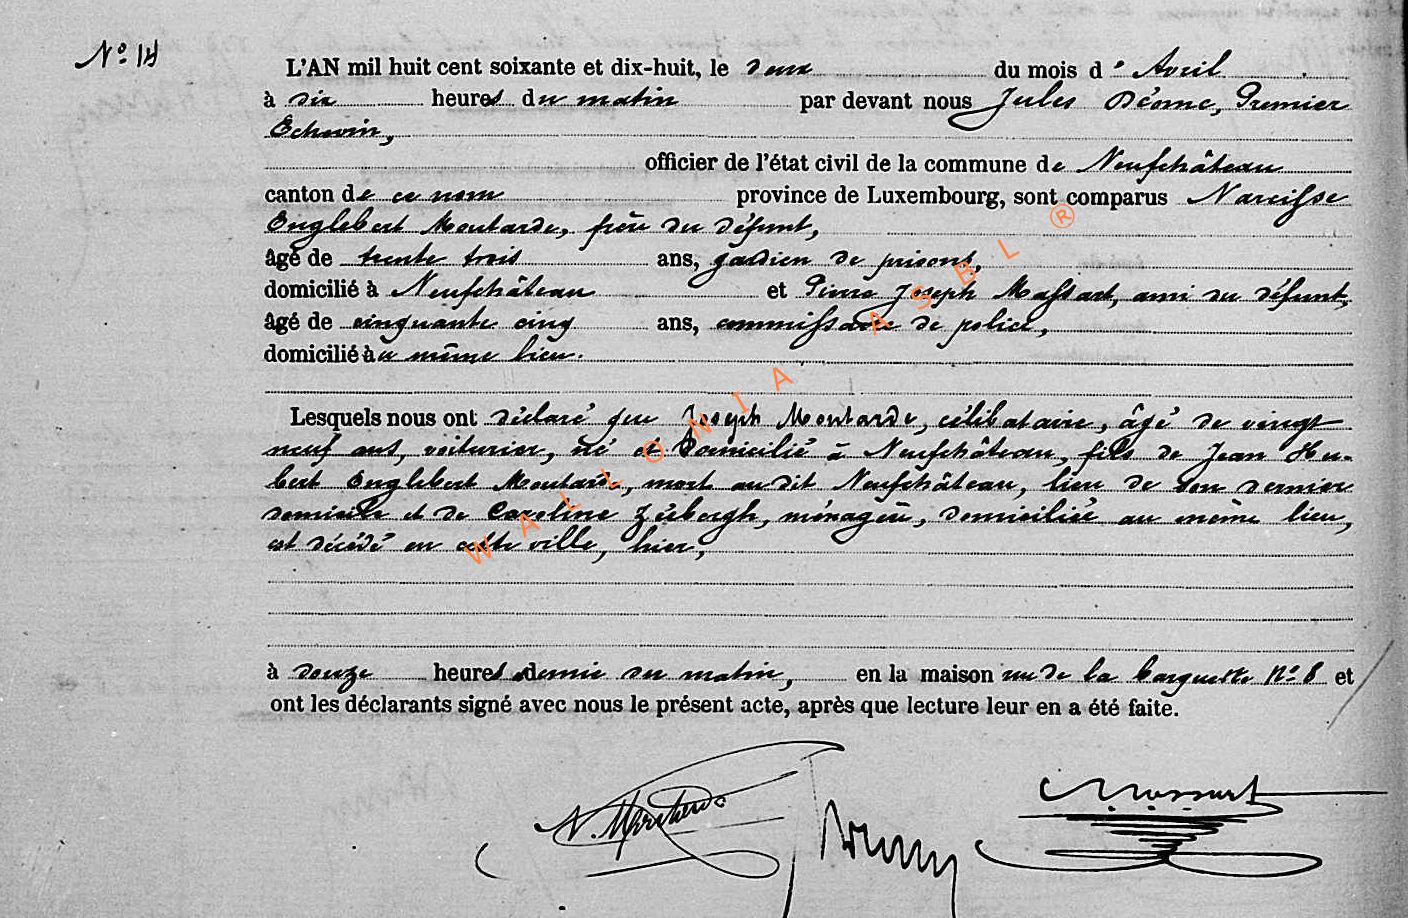 N° 14
L'AN mil huit cent soixante et dix-huit, le deux du mois d' Avril
à dix heures du matin par devant nous Jules Déome, Premier
Echevin,
officier de l'état civil de la commune de Neufchâteau
canton de ce nom province de Luxembourg, sont comparus Narcisse
Englebert Moutarde, frère du défunt,
âgé de trente trois ans, gardien de prisons,
domicilié à Neufchâteau et Pierre Joseph Massart, ami du défunt,
âgé de cinquante cinq ans, commissaire de police,
domicilié au même lieu.
Lesquels nous ont déclaré que Joseph Moutarde, célibataire, âgé de vingt
neuf ans, voiturier, né et domicilié à Neufchâteau, fils de Jean Hu-
bert Englebert Moutarde, mort audit Neufchâteau, lieu de son dernier
domicile et de Caroline, ménagère, domiciliée au même lieu,
est décédé en cette ville, hier,
à douze heures demie du matin, en la maison rue de la N° 8 et
ont les déclarants signé avec nous le présent acte, après que lecture leur en a été faite.
N. Moutarde
Massart
WALLONIA ASBL ®